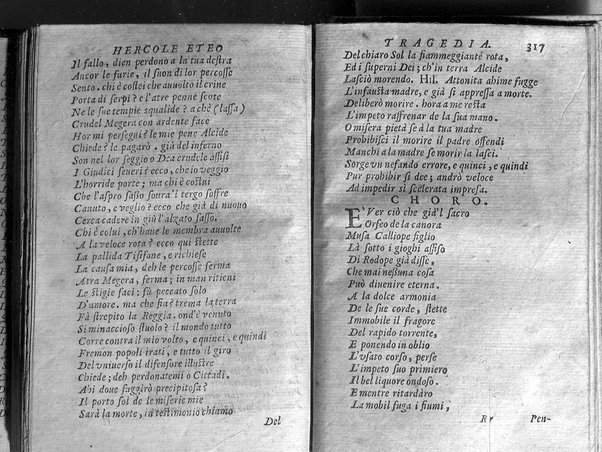 HERCOLE ETEO
Il fallo, dien perdono a la tua destra
Ancor le furie, il suon di lor percosse
Sento. chi è costei che auuolto il crine
Porta di serpi? e l'atre penne scote
Ne le sue tempie squalide? a chè (lassa)
Crudel Megera con ardente face
Hor mi persegui? le mie pene Alcide
Chiede? le pagarò. già del inferno
Son nel lor seggio o Dea crudele assisi
I Giudici seueri? ecco, che io veggio
L'horride porte; ma chi è costui
Che l'aspro sasso soura'l tergo soffre
Canuto, e veglio? ecco che già di nuouo
Cerca cadere in giù l'alzato sasso.
Chi è colui, ch'haue le membra auuolte
A la veloce rota? ecco qui stette
La pallida Tisifone, e richiese
La causa mia, deh le percosse ferma
Atra Megera, ferma; in man ritieni
Le stigie faci: fù peccato solo
D'amore. ma che fia? trema la terra
Fà strepito la Reggia. ond'è venuto
Sì minaccioso stuolo? il mondo tutto
Corre contra il mio volto, e quinci, e quindi
Fremon popoli irati, e tutto il giro
Del vniuerso il difensore illustre
Chiede; deh perdonatemi o Cittadi.
Ahi doue fuggirò precipitosa?
Il porto sol de le miserie mie
Sarà la morte, in testimonio chiamo
Del
TRAGEDIA. 317
Del chiaro Sol la fiammeggiante rota,
Ed i superni Dei; ch'in terra Alcide
Lasciò morendo. Hil. Attonita ahime fugge
L'infausta madre, e già si appressa a morte.
Deliberò morire. hora a me resta
L'impeto raffrenar de la sua mano.
O misera pietà se à la tua madre
Prohibisci il morire il padre offendi
Manchi a la madre se morir la lasci.
Sorge vn nefando errore, e quinci, e quindi
Pur prohibir si dee; andrò veloce
Ad impedir sì scelerata impresa.
CHORO.
E' Ver ciò che già'l sacro
Orfeo de la canora
Musa Calliope figlio
Là sotto i gioghi assiso
Di Rodope già disse,
Che mai nessuna cosa
Può diuenire eterna.
A la dolce armonia
De le sue corde, stette
Immobile il fragore
Del rapido torrente,
E ponendo in oblio
L'vsato corso, perse
L'impeto suo primiero
Il bel liquore ondoso.
E mentre ritardàro
La mobil fuga i fiumi,
Rr Pen-